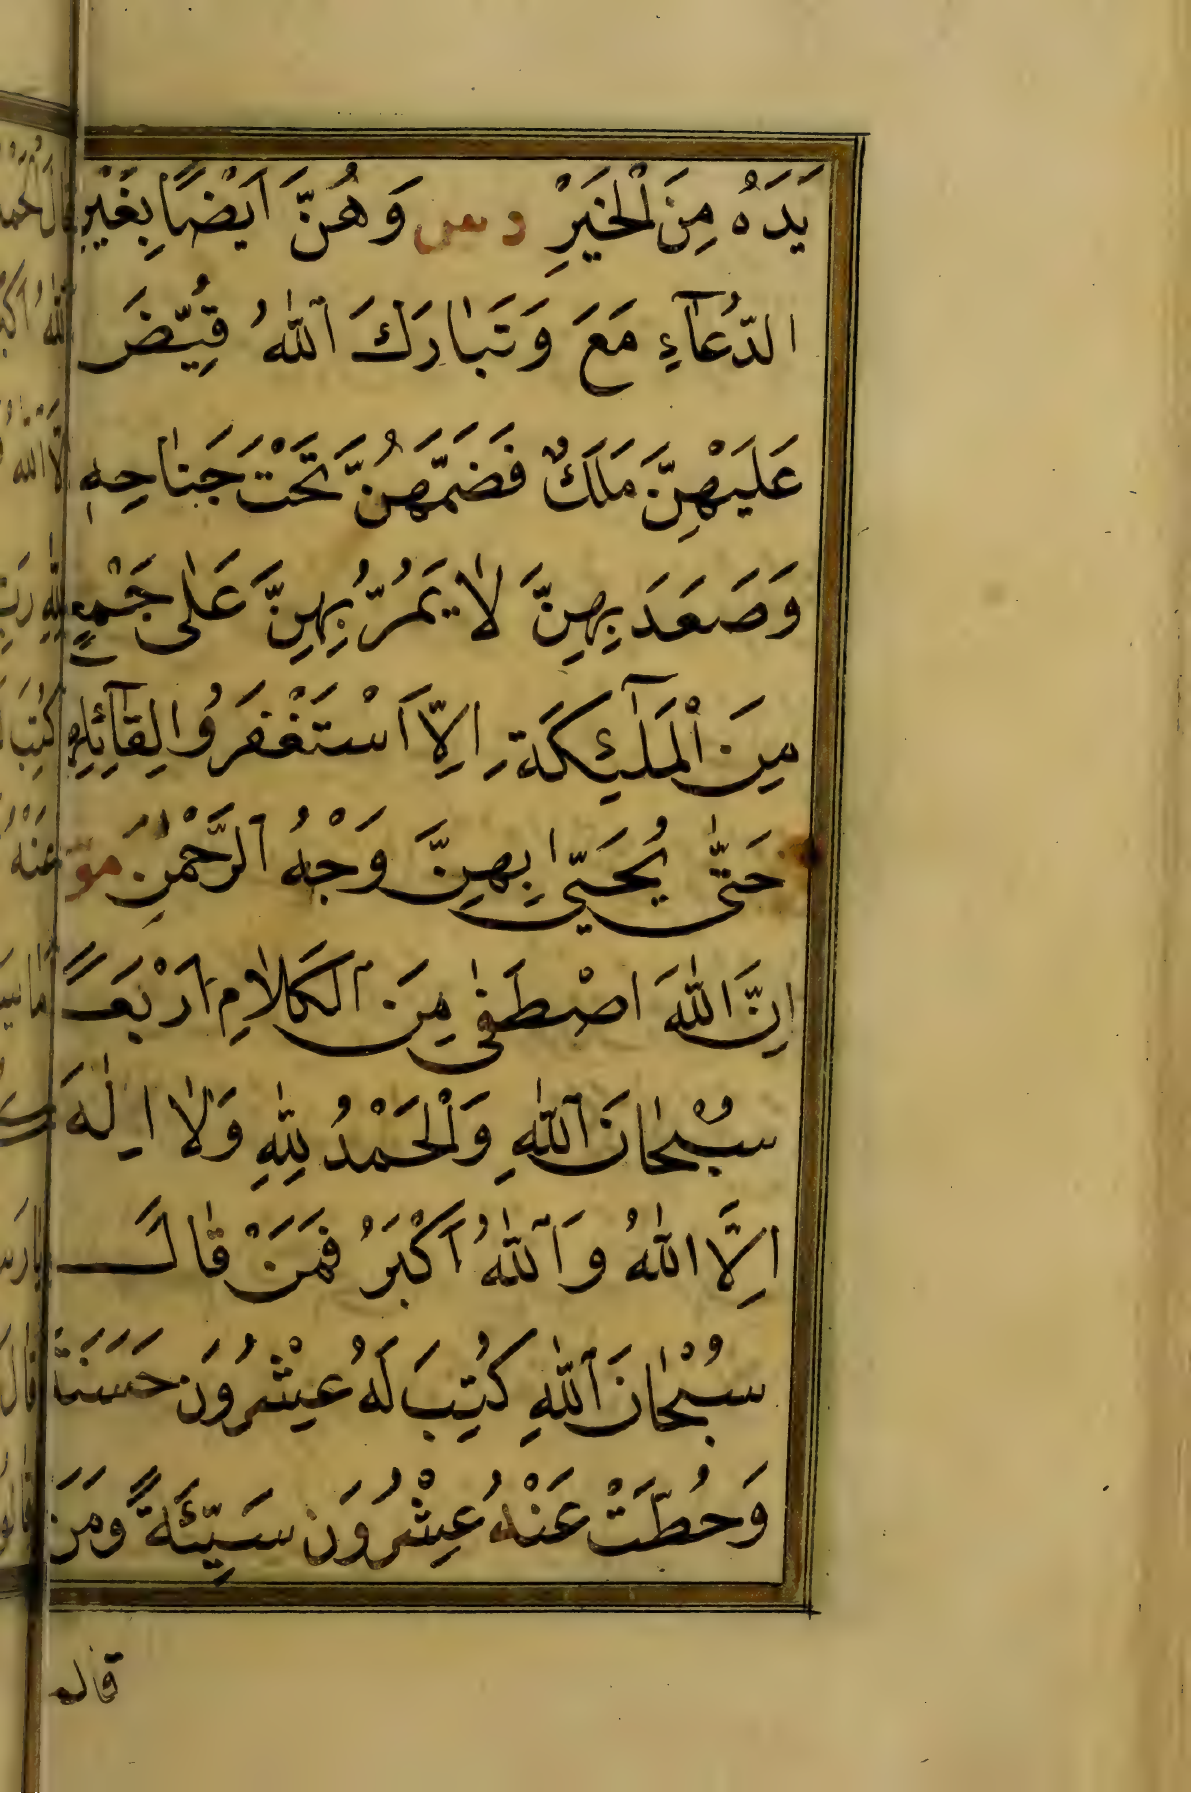 يَدَهُ مِنَ الْخَيْرِ د س وَهُنَّ اَيْضًا بِغَيْرِ
الدُّعَآءِ مَعَ وَتَبَارَكَ اللّٰهُ قُيِّضَ
عَلَيْهِنَّ مَلَكٌ فَضَمَّهُنَّ تَحْتَ جَنَاحِهِ
وَصَعَدَ بِهِنَّ لَا يَمُرُّ بِهِنَّ عَلٰى جَمْعٍ
مِنَ الْمَلٰٓئِكَةِ اِلَّا اَسْتَغْفَرُوا لِقَآئِلِهِ
حَتّٰى يُحَيّٰى بِهِنَّ وَجْهُ الرَّحْمٰنِ مو
اِنَّ اللّٰهَ اصْطَفٰى مِنَ الْكَلَامِ اَرْبَعًا
سُبْحَانَ اللّٰهِ وَالْحَمْدُ لِلّٰهِ وَلَا اِلٰهَ
اِلَّا اللّٰهُ وَاللّٰهُ اَكْبَرُ فَمَنْ قَالَ
سُبْحَانَ اللّٰهِ كُتِبَ لَهُ عِشْرُونَ حَسَنَةً
وَحُطَّتْ عَنْهُ عِشْرُونَ سَيِّئَةً وَمَنْ
قال